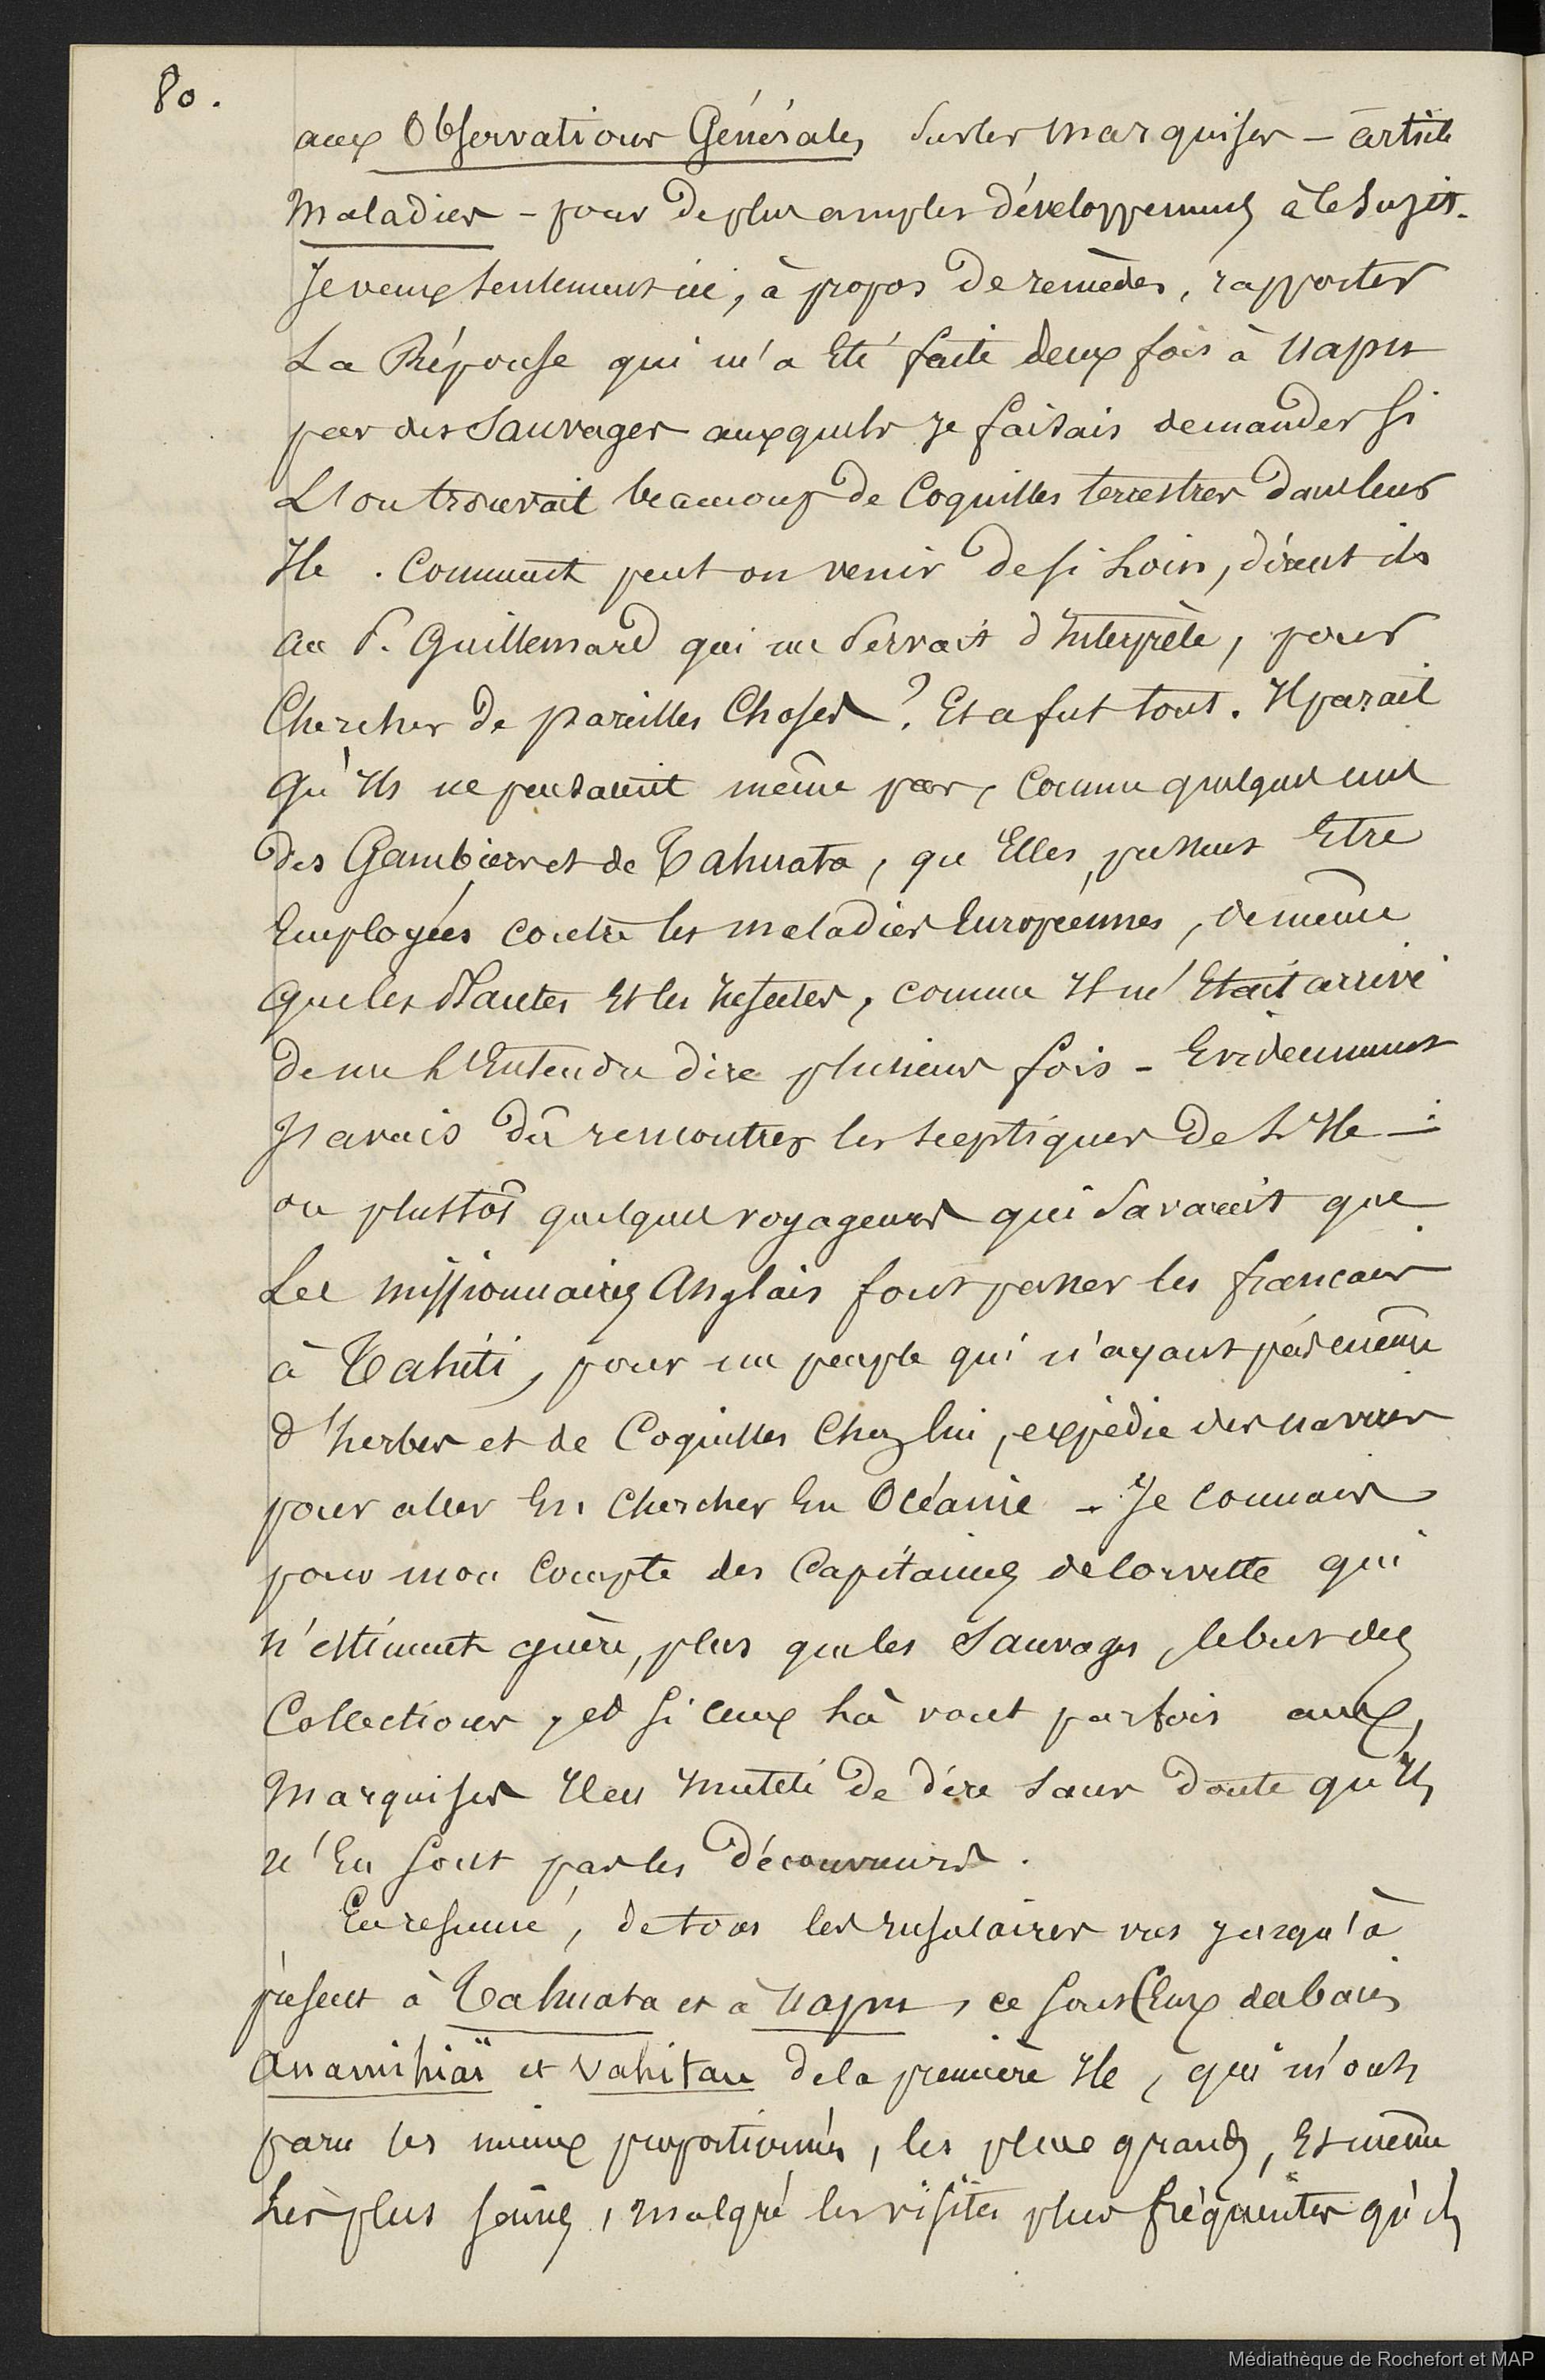 80.
aux Observations Générales sur les Marquises – article
Maladies – pour de plus amples développemens à ce sujet.
Je veux seulement ici, à propos de remèdes, rapporter
La Réponse qui m'a Eté faite deux fois à Uapu
par des Sauvages auxquels Je faisais demander si
L'on trouvait beaucoup de Coquilles terrestres dans leur
Ile. Comment peut on venir de si Loin, dirent ils
au P. Guillemard qui me servait d'Interprète, pour
Chercher de pareilles Choses ? Et ce fut tout. Il parait
Qu'Ils ne pensaient même pas, comme quelques uns
des Gambier et de Tahuata, que Elles pussent Etre
Employées contre les maladies Européennes, de même
que les Plantes Et les Insectes, comme Il m'Etait arrivé
de me L'Entendre dire plusieurs fois – Evidemment
J'avais dû rencontrer les sceptiques de L'Ile –:
ou plustôt quelques voyageurs qui savaient que
Les missionnaires Anglais font passer les francais
à Tahiti, pour un peuple qui n'ayant pas même
d'herbes et de Coquilles Chez lui, expédie des navires
pour aller En Chercher En Océanie – Je connais
pour mon Compte des Capitaines de Corvette qui
n'estiment guère, plus que les Sauvages, le but des
Collections, et si ceux Là vont parfois aux
Marquises Il est Inutile de dire sans doute qu'Ils
n'En sont pas les découvreurs.
En résumé, de tous les Insulaires vus jusqu'à
présent à Tahuata et à Uapu, ce sont Ceux des baies
Anamihiaï et Vahitau de la première Ile, qui m'ont
paru les mieux proportionnés, les plus grands, Et même
Les plus sains, malgré les visites plus fréquentes qu'ils
Médiathèque de Rochefort et MAP